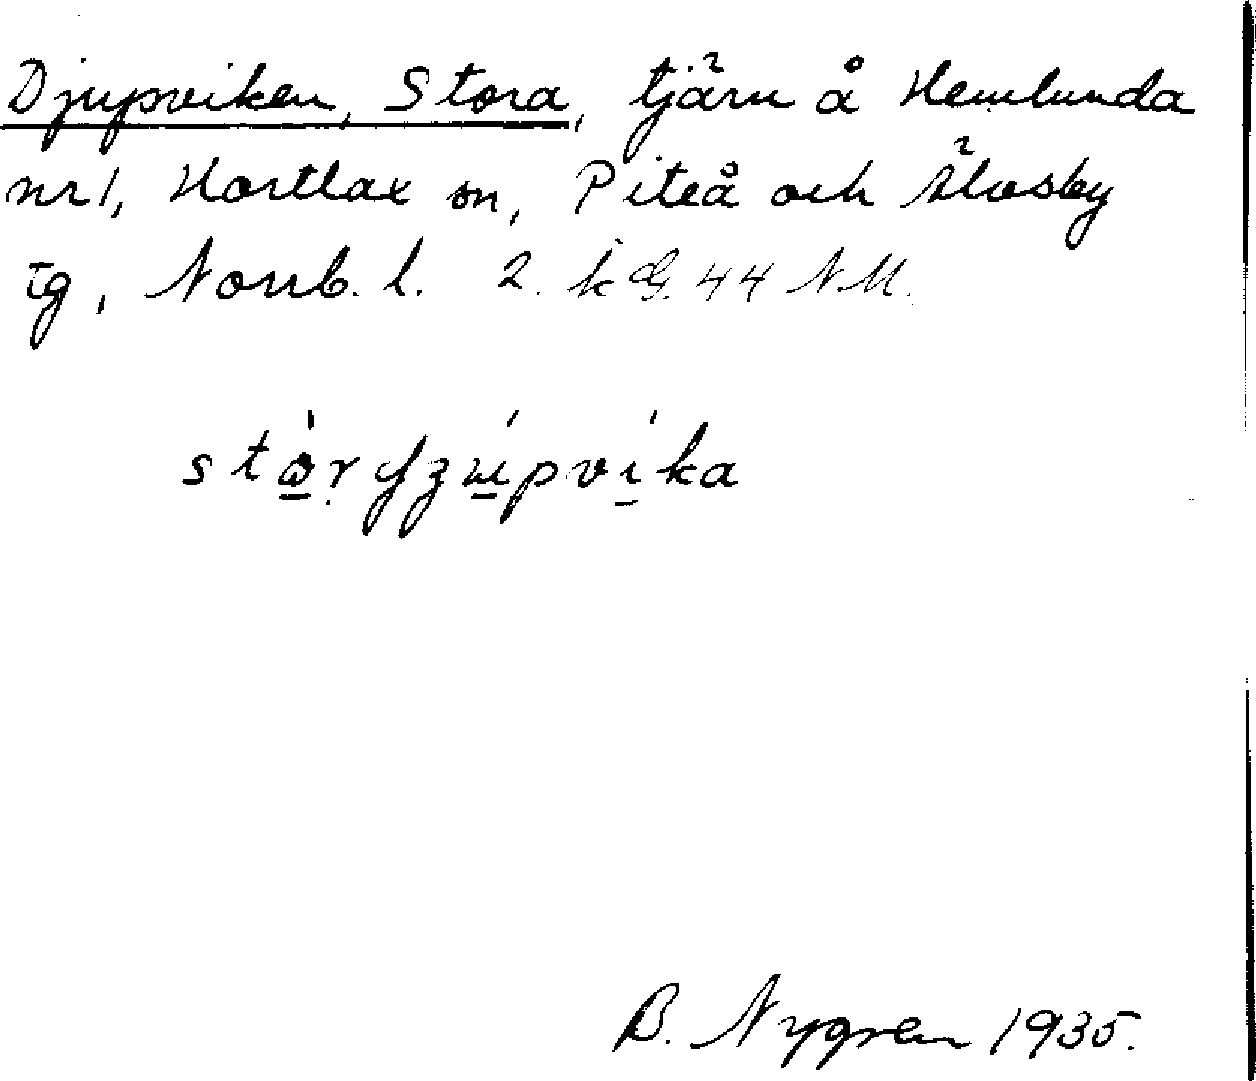 Djupviken, Stora, tjärn å Hemlunda
nr 1, Hortlax sn, Piteå och Älvsby
tg, Norrb. l. 2. k G. 44 NM.
stɷrɟʒɯpvika
B. Nygren 1935.